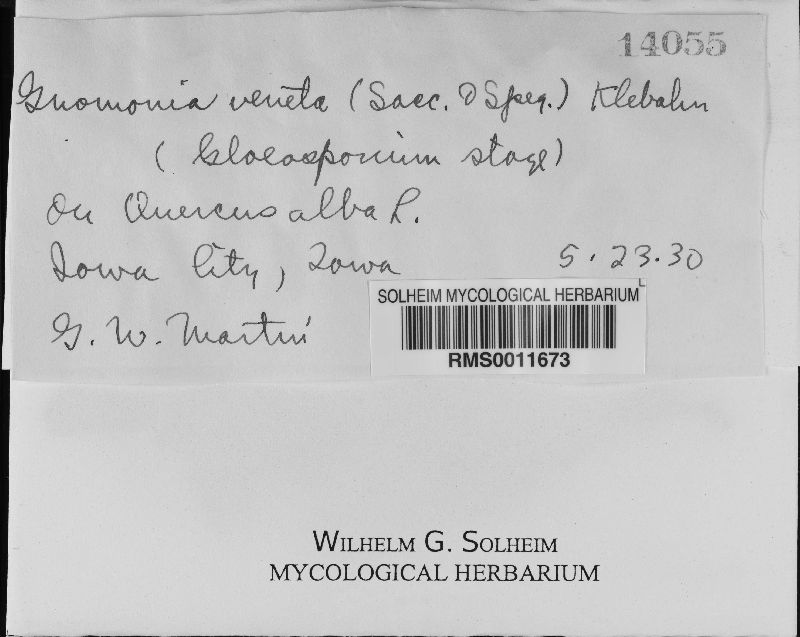 14055
Gnomonia veneta (Sacc. & Speg.) Klebahn
(Gloeosporium stage)
On Quercus alba L.
Iowa City, Iowa 5.23.30
G. W. Martin
SOLHEIM MYCOLOGICAL HERBARIUM
RMS0011673
WILHELM G. SOLHEIM
MYCOLOGICAL HERBARIUM